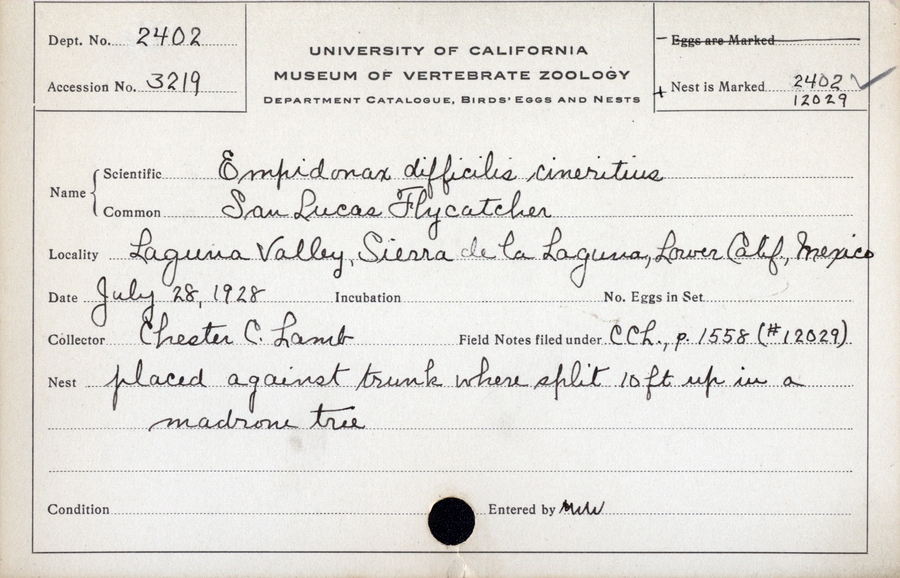 Dept. No. 2402
Accession No. 3219
UNIVERSITY OF CALIFORNIA
MUSEUM OF VERTEBRATE ZOOLOGY
DEPARTMENT CATALOGUE, BIRDS' EGGS AND NESTS
- Eggs are Marked
+ Nest is Marked 2402 ✓
12029
Name
Scientific Empidonax difficilis cineritius
Common San Lucas Flycatcher
Locality Laguna Valley, Sierra de la Laguna, Lower Calif., Mexico
Date July 28, 1928 Incubation No. Eggs in Set
Collector Chester C. Lamb Field Notes filed under CCL., p. 1558 (#12029)
Nest placed against trunk where split 10 ft up in a
madrone tree
Condition Entered by